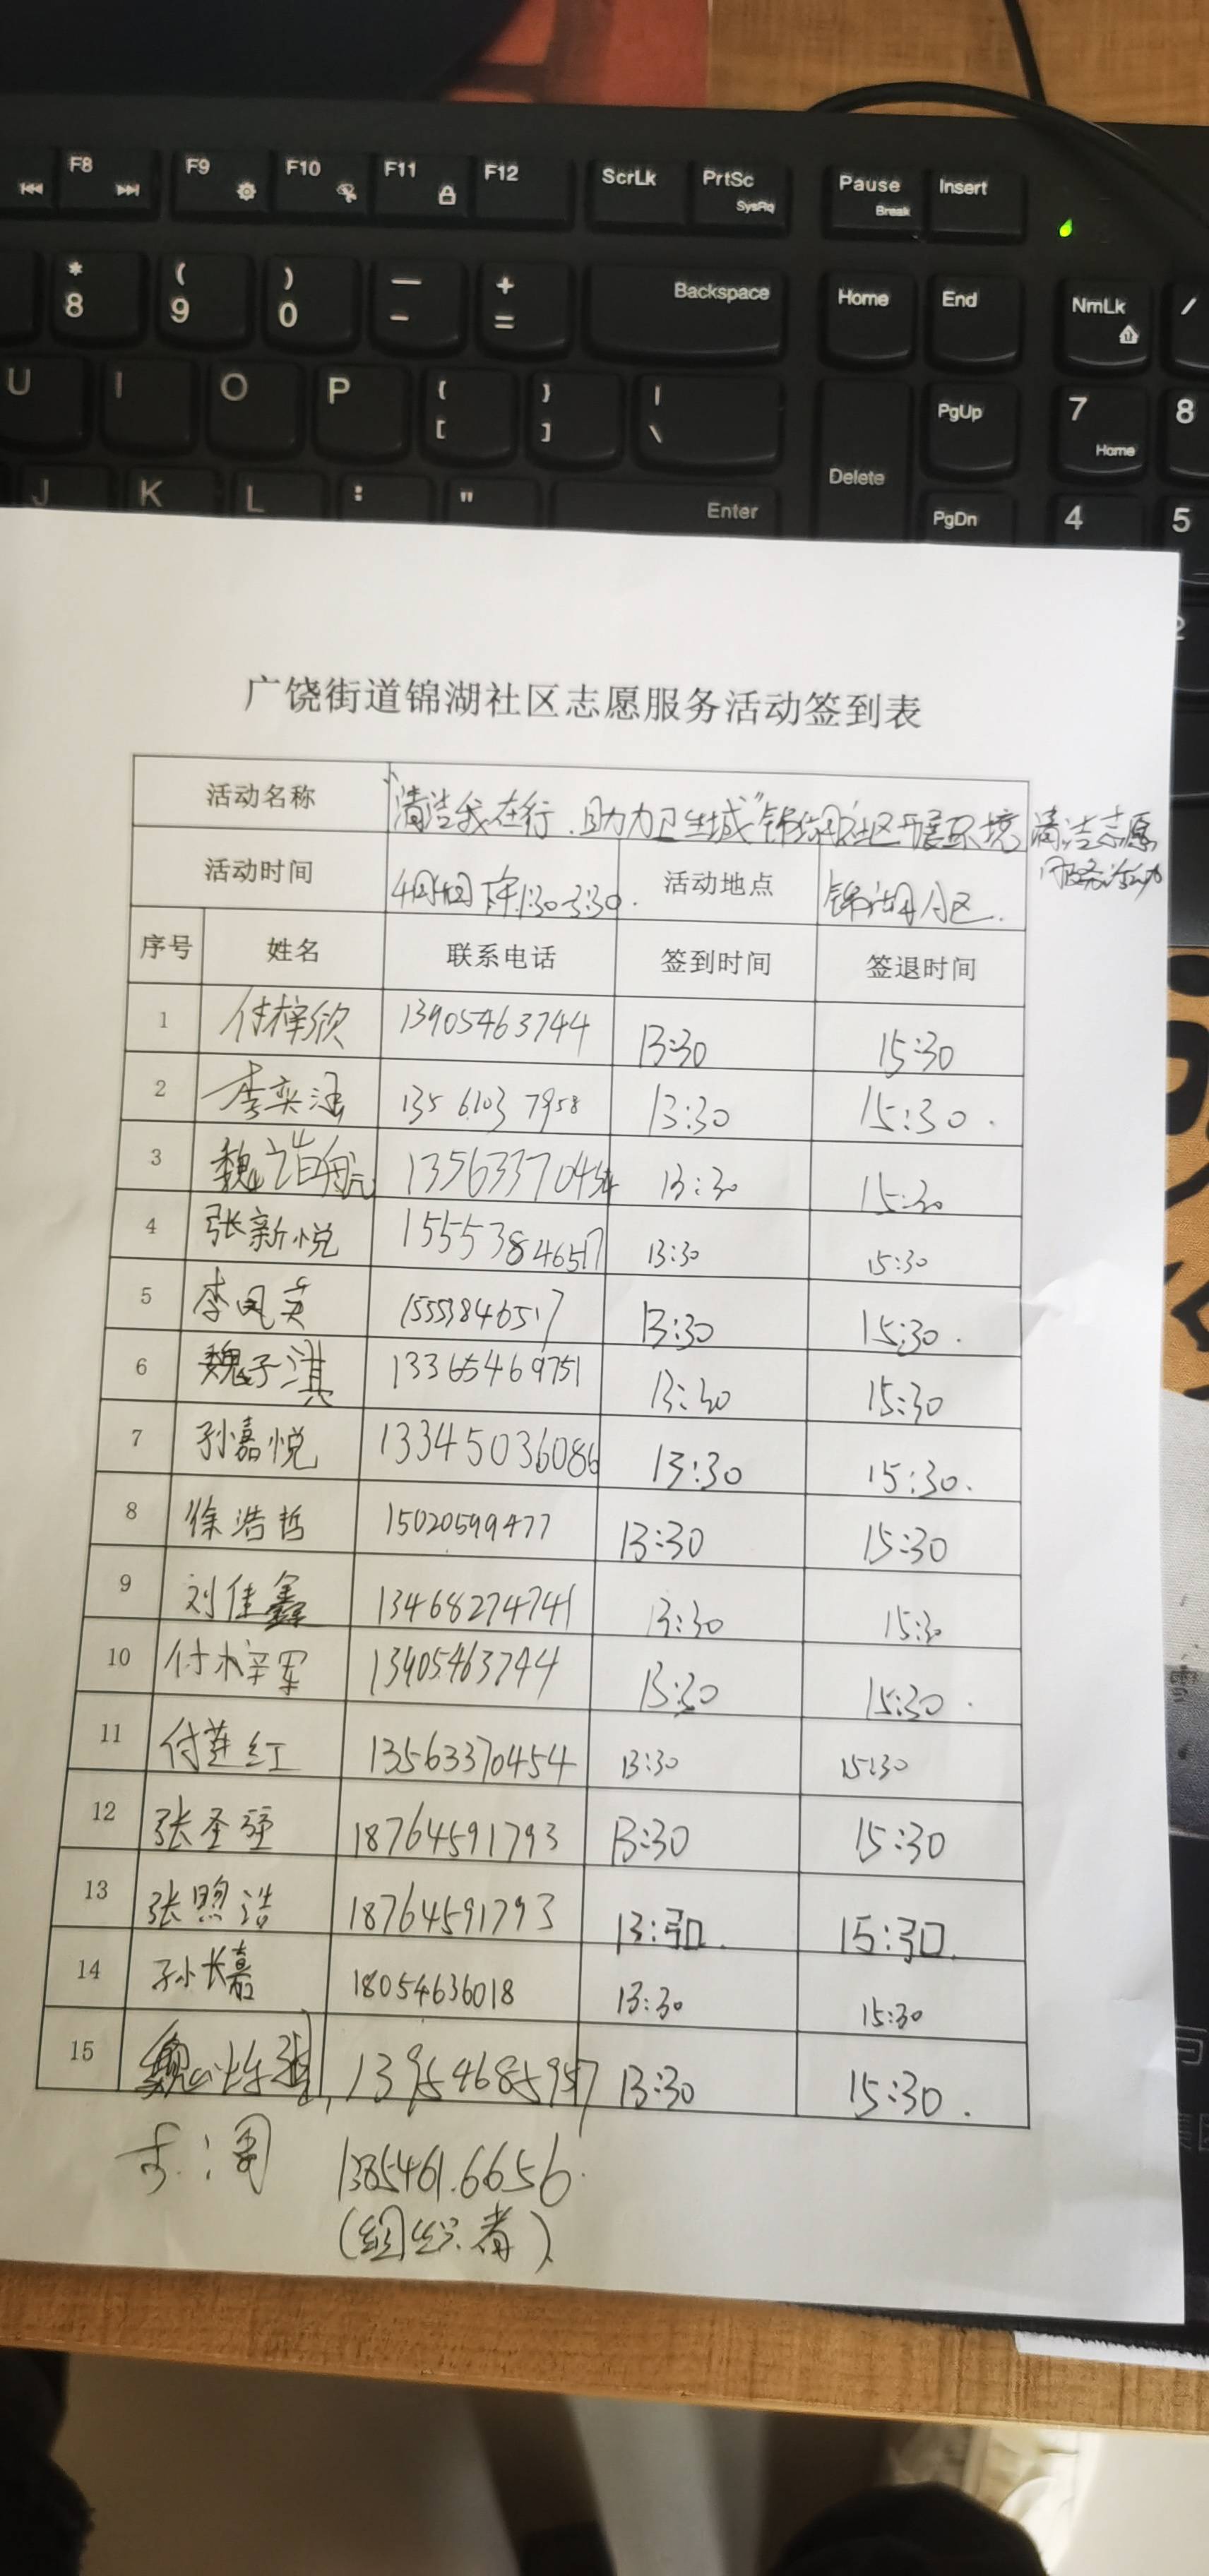 F8 F9 F10 F11 F12 ScrLk PrtSc SysRq Pause Break Insert
* 8 ( 9 ) 0 — - + = Backspace Home End NmLk /
U I O P { [ } ] | \ Delete PgUp 7 Home 8
J K L : " Enter PgDn 4 5
2
广饶街道锦湖社区志愿服务活动签到表
活动名称 "清洁我在行、助力卫生城"锦湖社区开展环境清洁志愿服务活动
活动时间 下午1:30-3:30. 活动地点 锦湖小区.
序号 姓名 联系电话 签到时间 签退时间
1 付梓欣 13905463744 13:30 15:30
2 李奕涵 135 6103 7958 13:30 15:30.
3 魏 航 13563370454 13:30 15:30
4 张新悦 15553846517 13:30 15:30
5 李凤英 15553846517 13:30 15:30.
6 魏子淇 13365469751 13:30 15:30
7 孙嘉悦 13345036086 13:30 15:30.
8 徐浩哲 15020599477 13:30 15:30
9 刘佳鑫 13468274741 13:30 15:30
10 付 军 13905463744 13:30 15:30.
11 付莲红 13563370454 13:30 15:30
12 张圣强 18764591793 13:30 15:30
13 张照浩 18764591793 13:30. 15:30.
14 孙长嘉 18054636018 13:30 15:30
15 魏 13954685957 13:30 15:30.
(组织者)